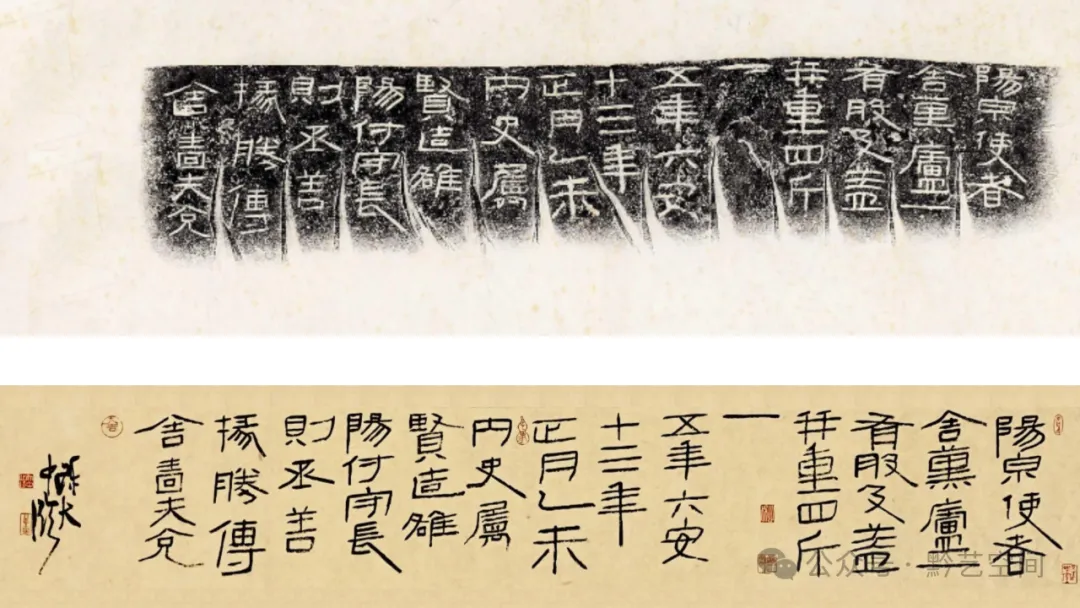 陽泉使者
舍薰盧一
有般及蓋
并重四斤
一
五年六安
十三年
正月乙未
内史屬
賢造雒
陽付守長
則丞善
掾勝傳
舍嗇夫兌
陽泉使者
舍薰盧一
有般及蓋
并重四斤
一
五年六安
十三年
正月乙未
内史屬
賢造雒
陽付守長
則丞善
掾勝傳
舍嗇夫兌
公众号·黔艺空间